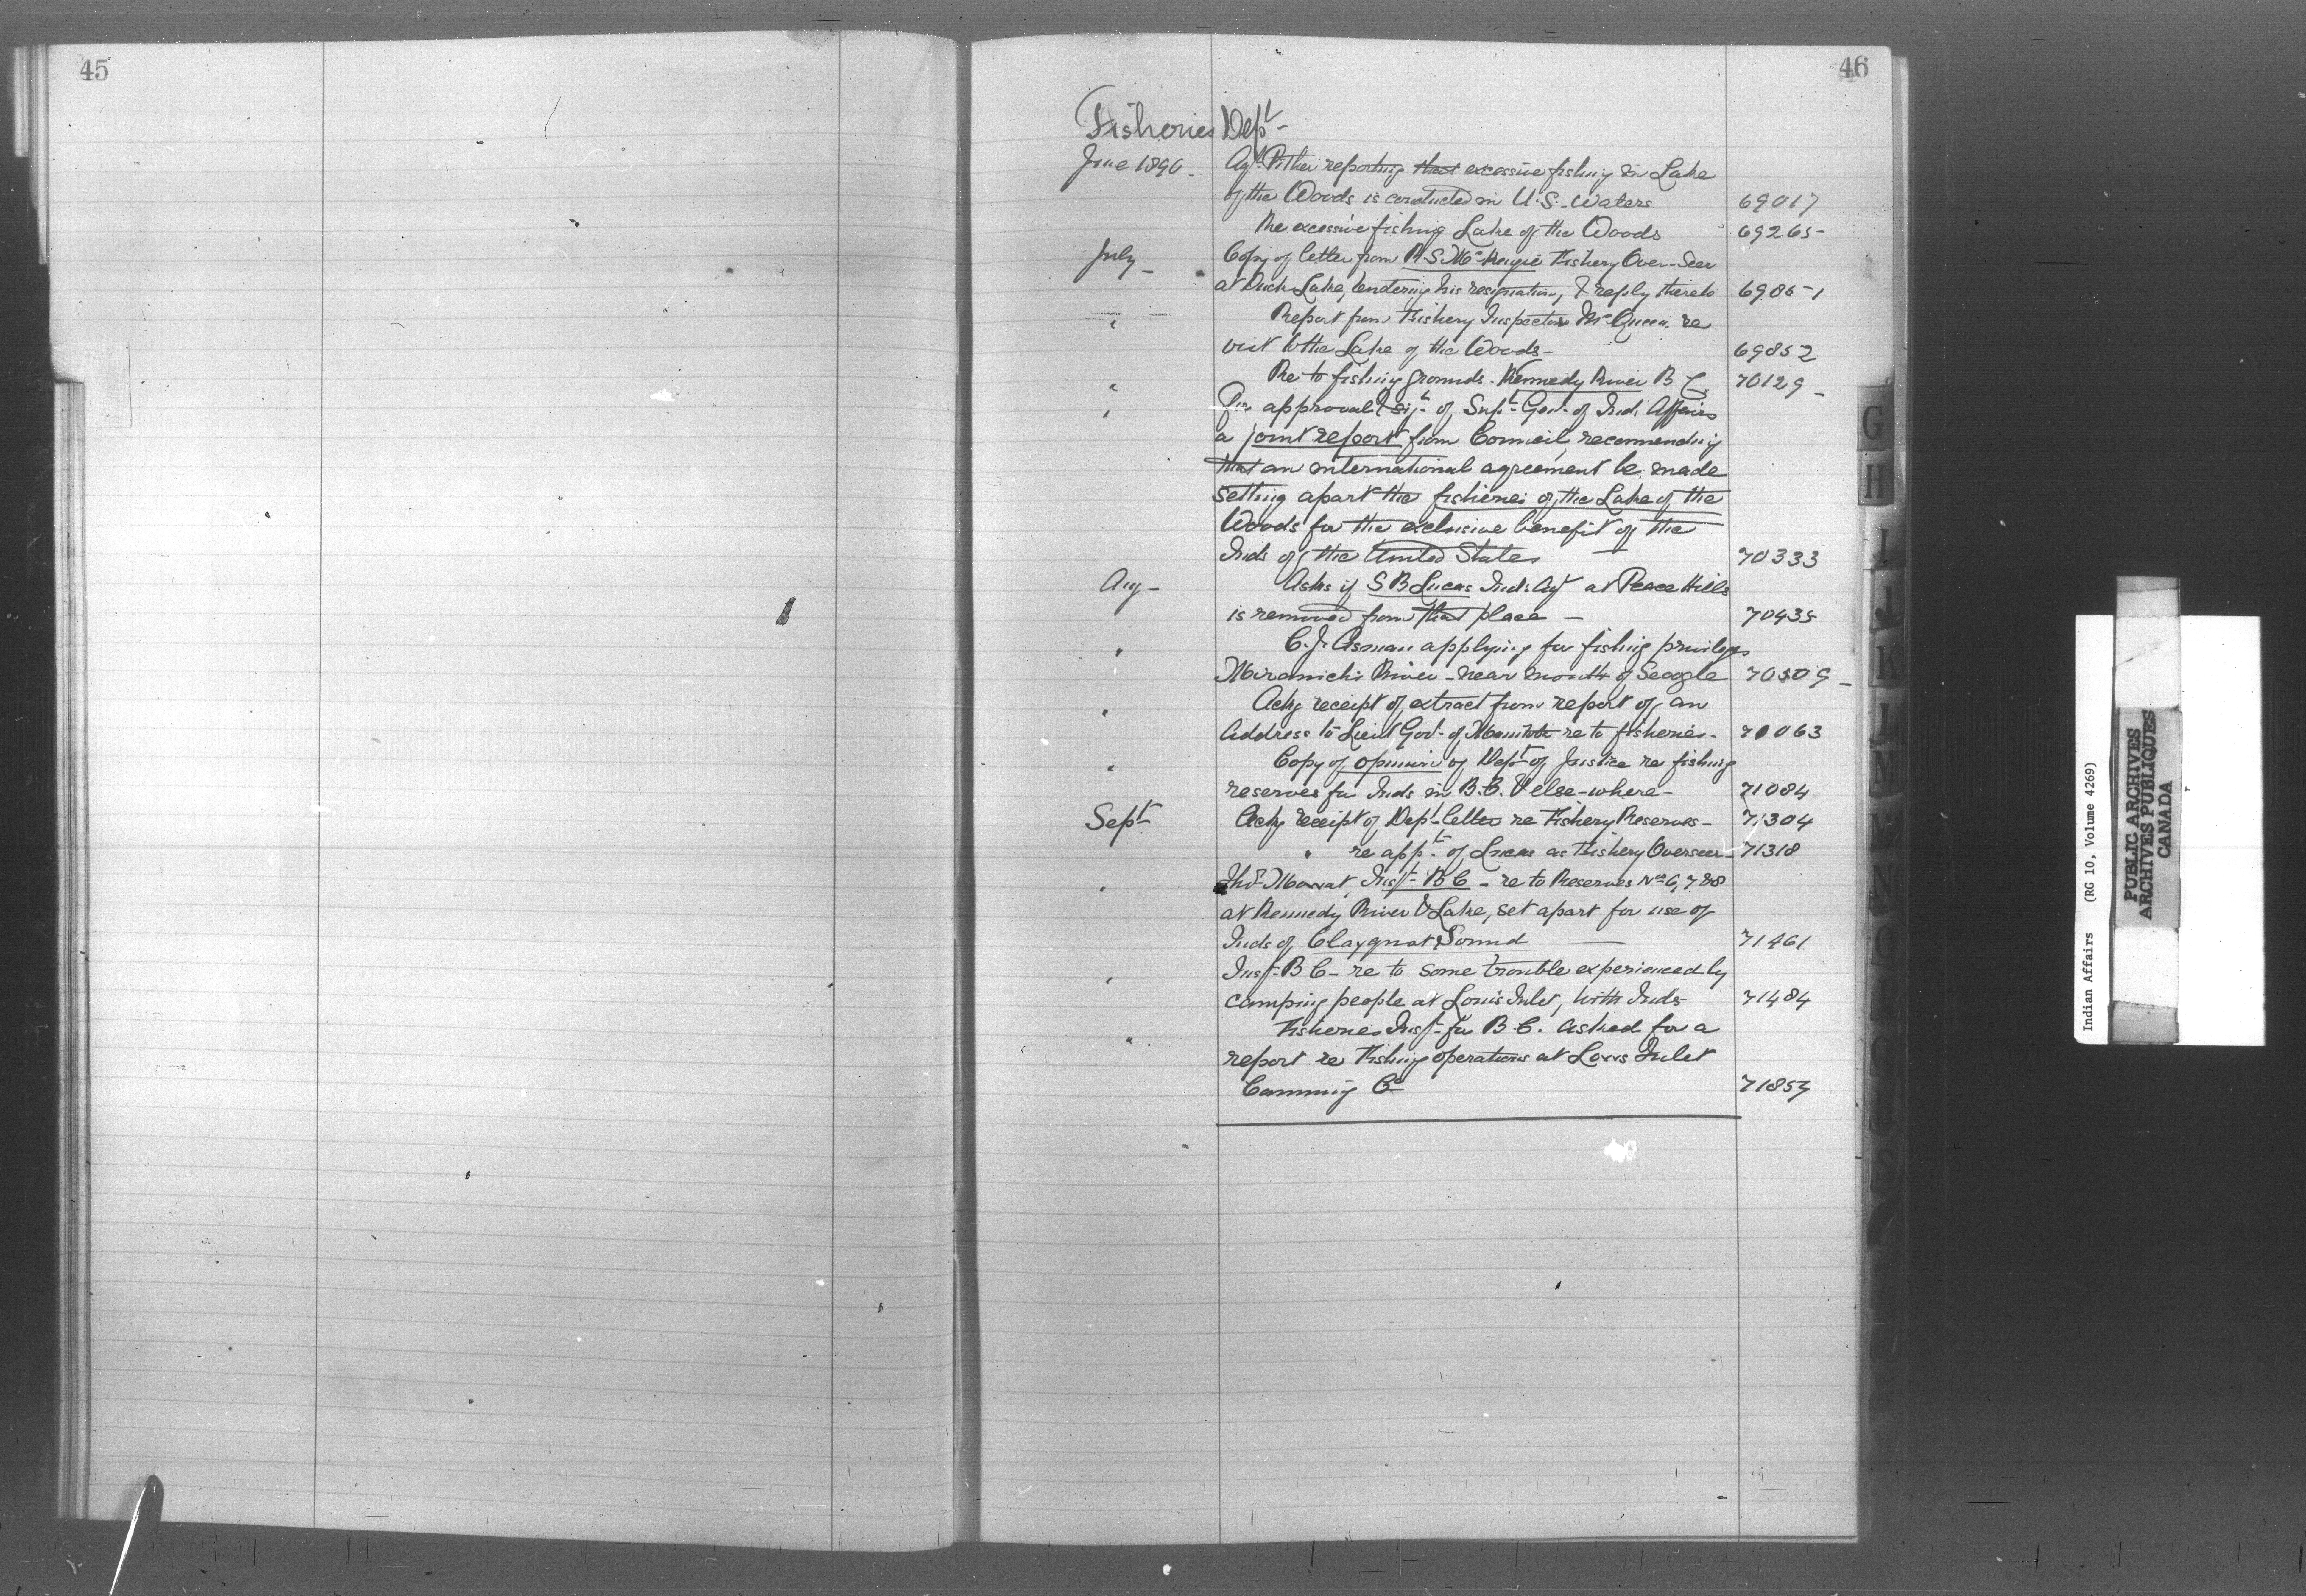 45
46
Fisheries Dept
June 1890. Agt. Pither reporting that excessive fishing in Lake
of the Woods is conducted in U.S. Waters 69017
Re excessive fishing Lake of the Woods 69265
July Copy of letter from R. S. McKenzie Fishery Over-Seer
at Duck Lake, tendering his resignation, & reply thereto 69851
" Report from Fishery Inspector McQueen re
visit to the Lake of the Woods 69852
" Re to fishing grounds. Kennedy River B C 70129
" For approval & sigt. of Supt. Genl. of Ind. Affairs
a joint report from Council, recommending
that an international agreement be made
setting apart the fisheries of the Lake of the
Woods for the exclusive benefit of the
Inds of the United States 70333
Aug Asks if S B Lucas Inds Agt at Peace Hills
is removed from that place 70435
" C. J. Asman applying for fishing privileges
Miramichi River - near mouth of Seagle 70509
" Ackg receipt of extract from report of an
address to Lieut Govr. of Manitoba re to fisheries 71063
" Copy of opinion of Dept of Justice re fishing
reserves for Inds in B.C. & else-where 71084
Sept Ackg receipt of Dept letter re Fishery Reserves 71304
" re appt. of Lucas as Fishery Overseer 71318
" Thos. Mowat, Inspt. B C - re to Reserves Nos 6, 7 & 8
at Kennedy River & Lake, set apart for use of
Inds of Clayquot Sound 71461
" Inspt. B C - re to some trouble experienced by
camping people at Lowis Inlet, with Inds 71484
" Fisheries Inspt. for B.C. asked for a
report re Fishing operations at Lowis Inlet
Canning Co 71854
G
H
I
J
K
L
M
N
O
S
Indian Affairs (RG 10, Volume 4269)
PUBLIC ARCHIVES
ARCHIVES PUBLIQUES
CANADA